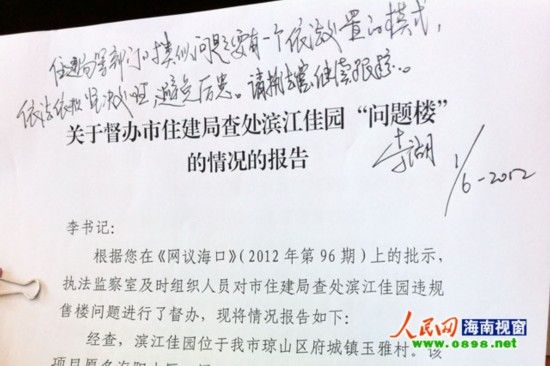 住建局等部门的类似问题要有一个依法处置的模式，
依法依规坚决 避免后患。请 继续跟踪。
关于督办市住建局查处滨江佳园“问题楼”
的情况的报告
李湖
1/6-2012
李书记：
根据您在《网议海口》（2012年第96期）上的批示，
执法监察室及时组织人员对市住建局查处滨江佳园违规
售楼问题进行了督办，现将情况报告如下：
经查，滨江佳园位于我市琼山区府城镇玉雅村。该
人民网 海南视窗
www.0898.net